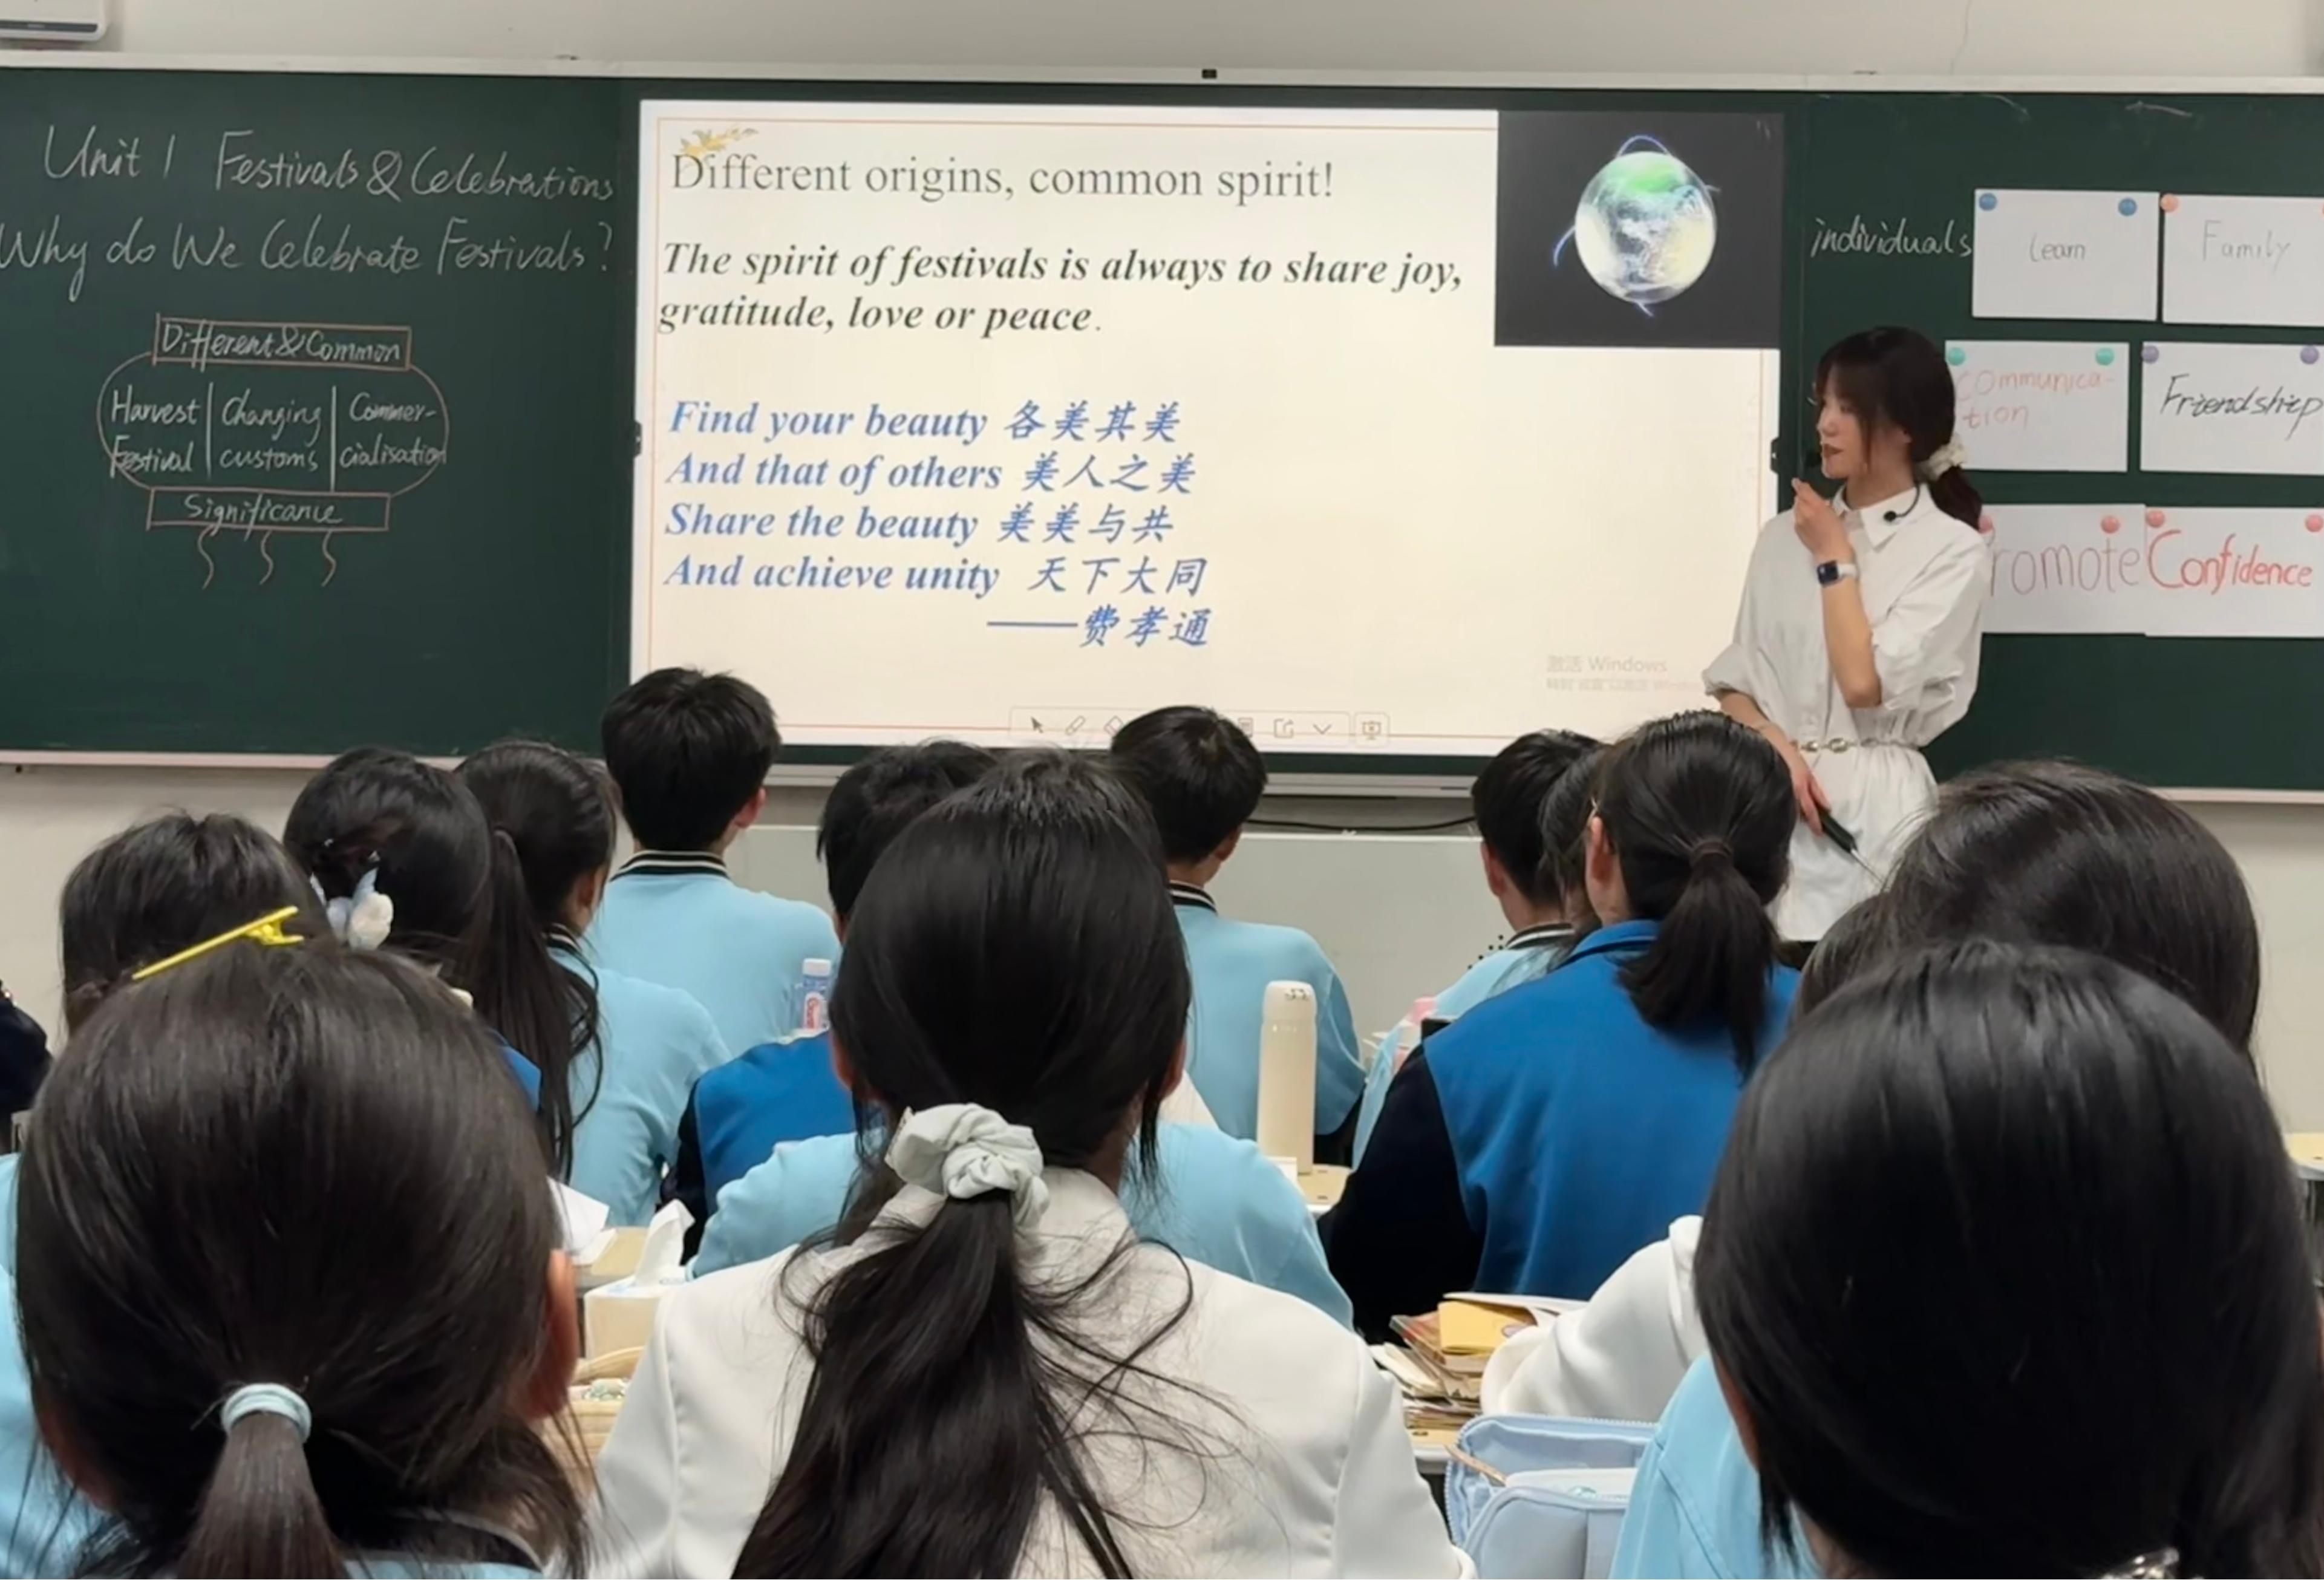 Unit 1 Festivals & Celebrations
Why do We Celebrate Festivals?
Different & Common
Harvest Festival
Changing customs
Commer-
cialisation
Significance
Different origins, common spirit!
The spirit of festivals is always to share joy,
gratitude, love or peace.
Find your beauty 各美其美
And that of others 美人之美
Share the beauty 美美与共
And achieve unity 天下大同
——费孝通
激活 Windows
individuals
Learn
Family
Communica-
tion
Friendship
romote
Confidence